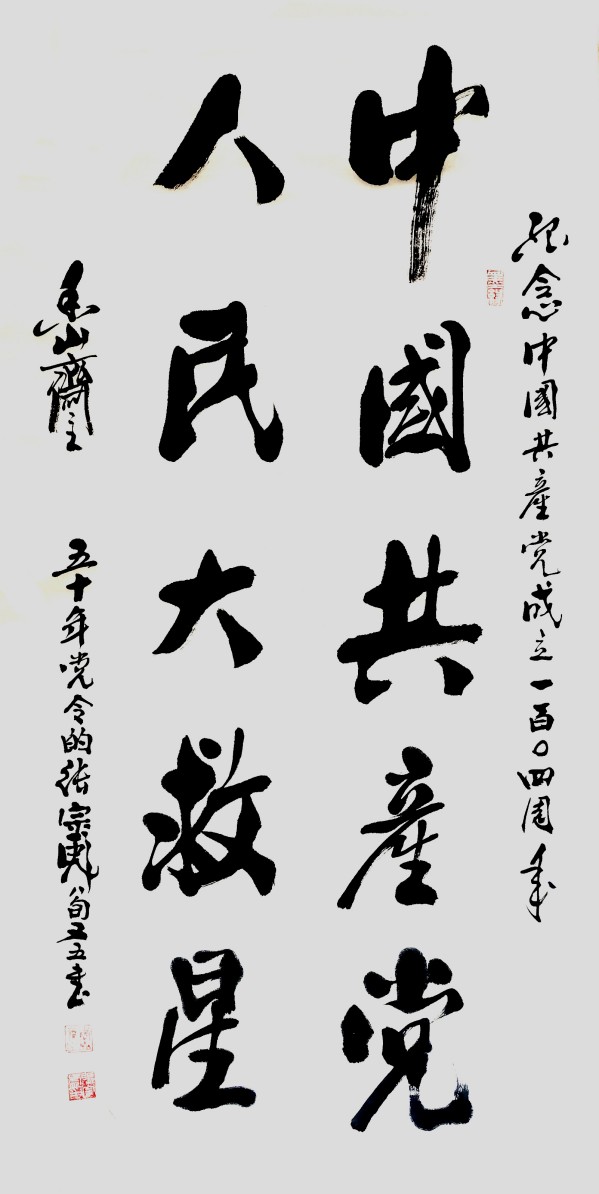 纪念中國共產党成立一百〇四周年
中國共產党
人民大救星
香山齋主
五十年党令的張宗彪八旬又五書